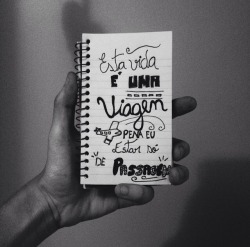 Esta vida
É UMA
Viagem
PENA EU
Estar só
DE PASSAGEM